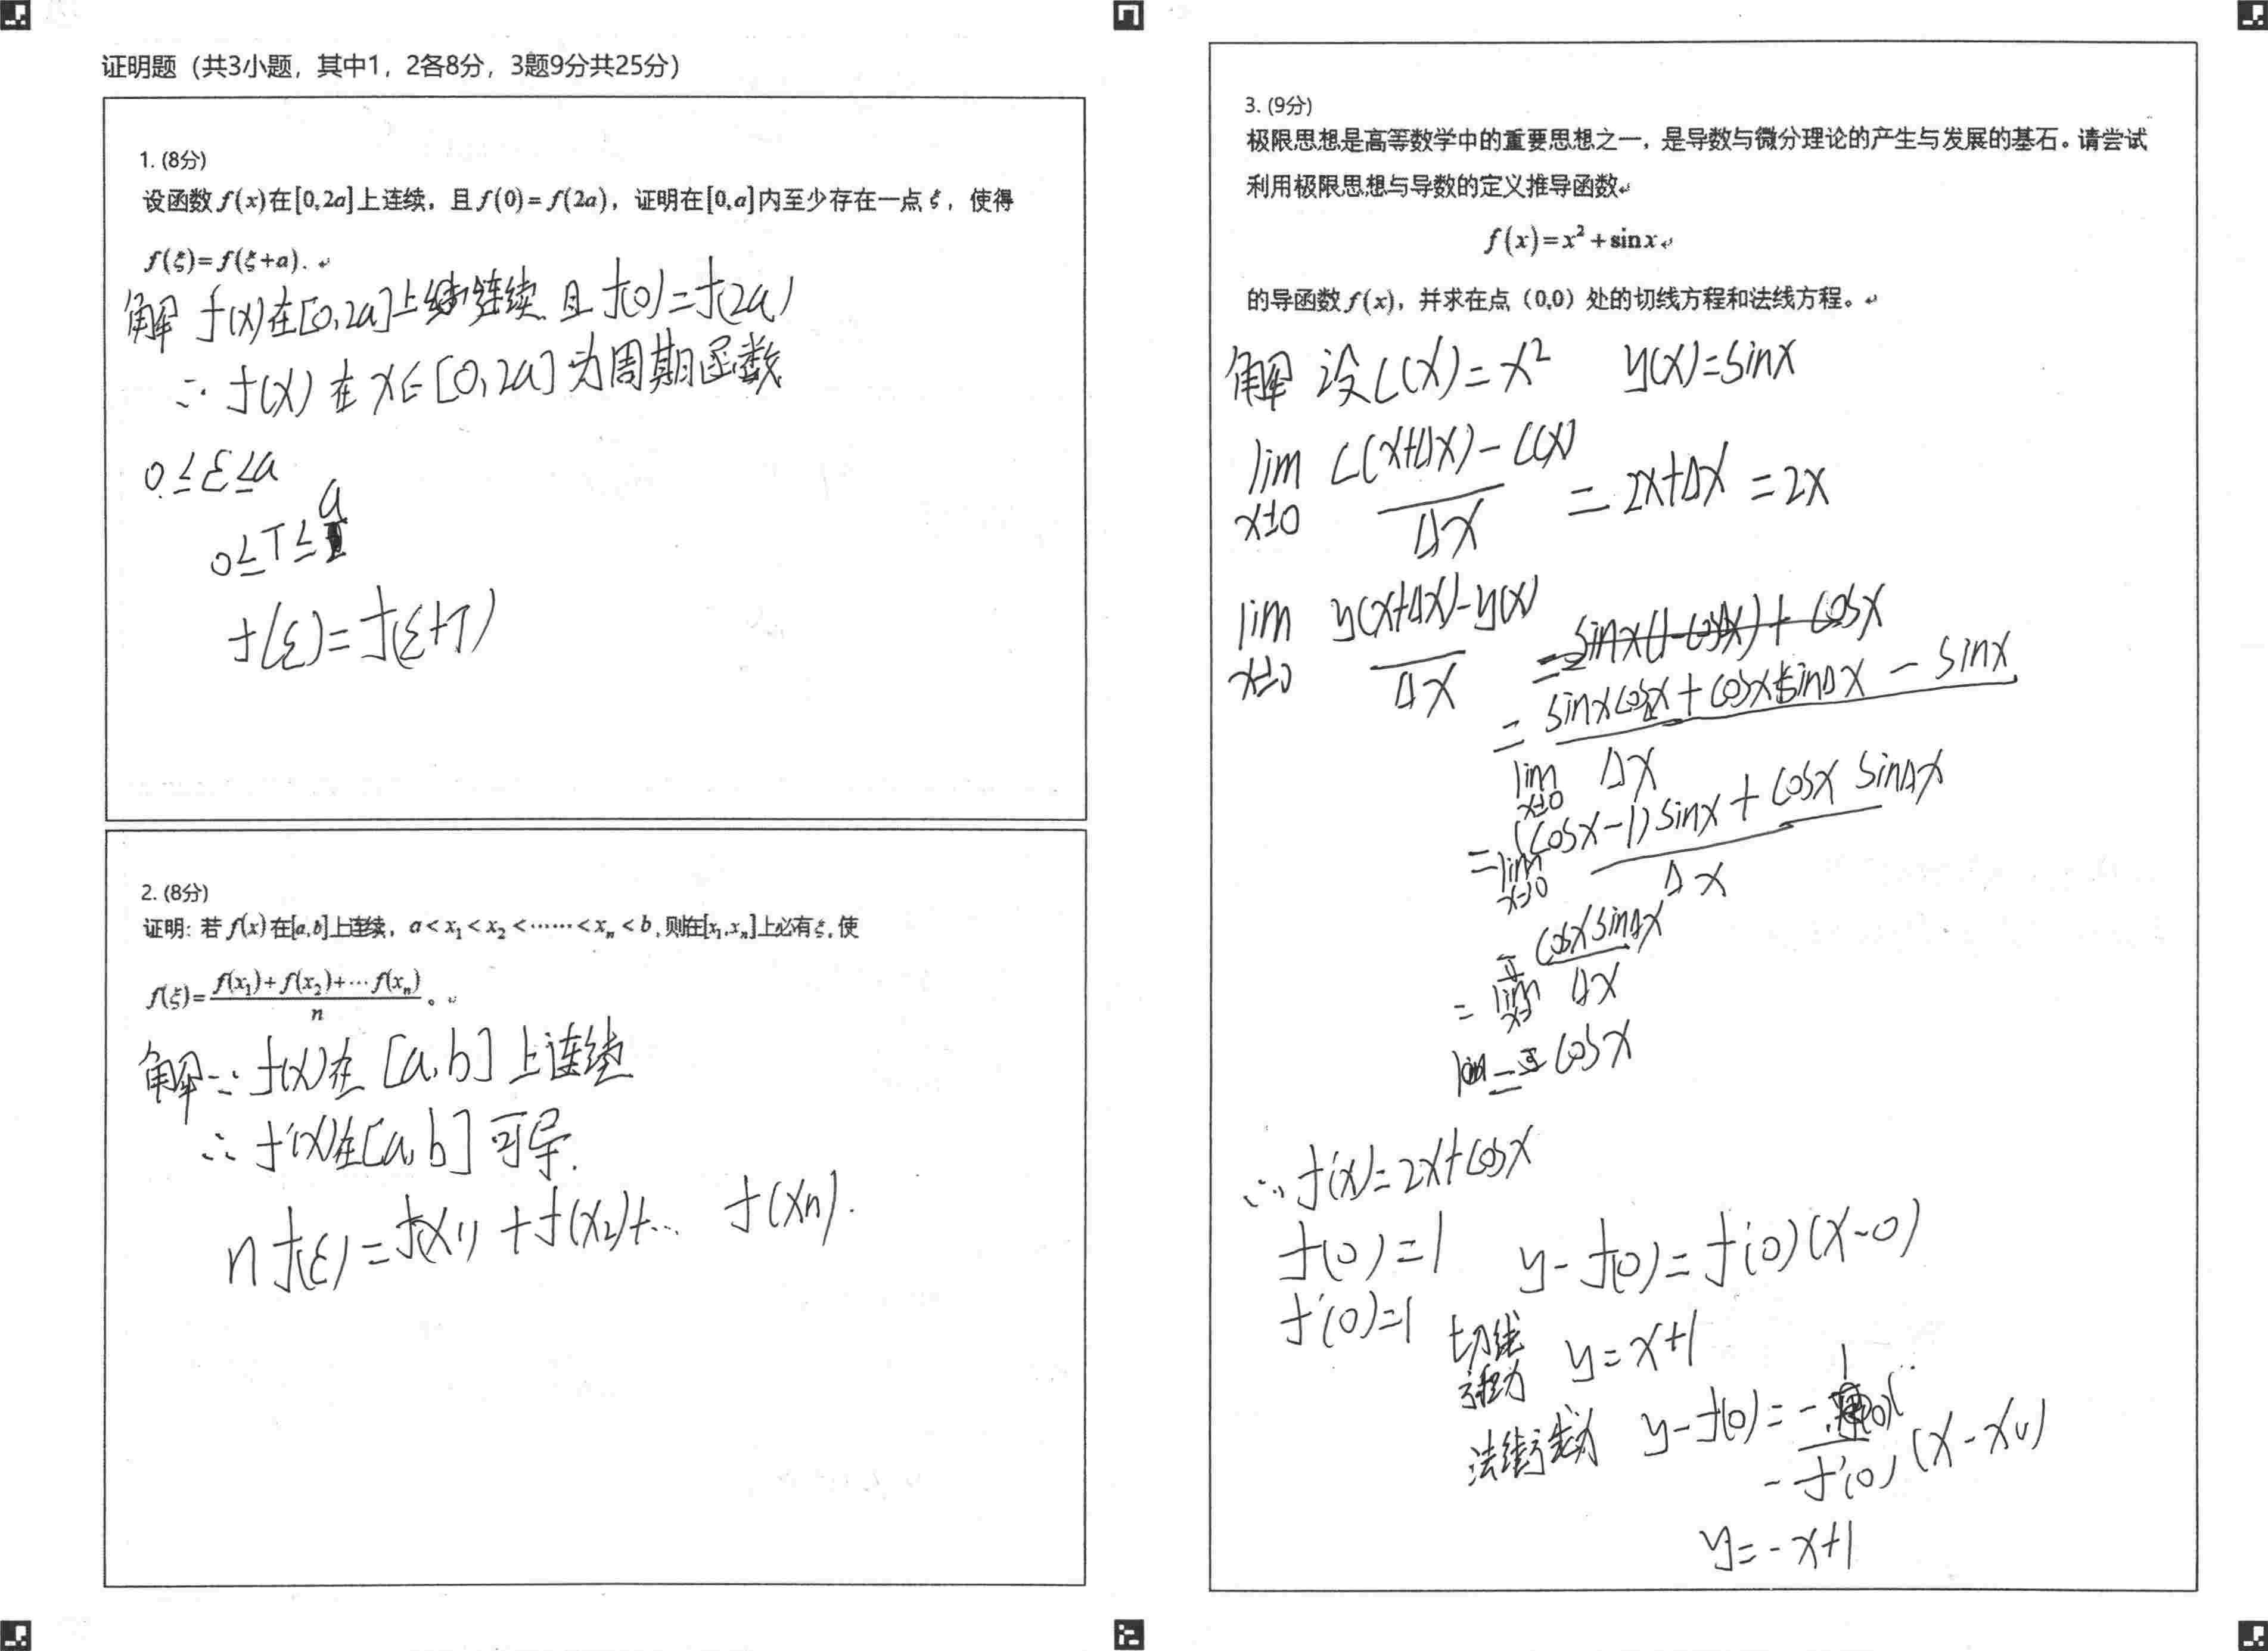 证明题（共3小题，其中1，2各8分，3题9分共25分）
1. (8分)
设函数 f(x) 在 [0,2a] 上连续，且 f(0) = f(2a)，证明在 [0,a] 内至少存在一点 ξ，使得
f(ξ)=f(ξ+a).
解 f(x)在[0,2a]上连续 且 f(0)=f(2a)
∴ f(x) 在 x∈[0,2a] 为周期函数
0≤ξ≤a
0≤T≤a
f(ξ)=f(ξ+T)
2. (8分)
证明：若 f(x) 在[a,b]上连续，a < x₁ < x₂ < …… < xₙ < b，则在[x₁,xₙ]上必有ξ，使
f(ξ)= (f(x₁)+f(x₂)+⋯f(xₙ))/n 。
解∵ f(x)在 [a,b] 上连续
∴ f(x)在[a,b] 可导.
n f(ξ)=f(x₁)+f(x₂)+… f(xn).
3. (9分)
极限思想是高等数学中的重要思想之一，是导数与微分理论的产生与发展的基石。请尝试
利用极限思想与导数的定义推导函数
f(x)=x²+sinx
的导函数 f(x)，并求在点（0,0）处的切线方程和法线方程。
解 设 L(x)=x² y(x)=sinx
lim x→0 (L(x+Δx)-L(x))/Δx = 2x+Δx = 2x
lim x→0 (y(x+Δx)-y(x))/Δx
= (sinxcosΔx+cosxsinΔx - sinx)/Δx
= lim x→0 ((cosx-1)sinx+cosx sinΔx)/Δx
= lim (cosxsinΔx)/Δx
= cosx
∴ f'(x)=2x+cosx
f(0)=1 y-f(0)=f'(0)(x-0)
f'(0)=1
切线方程为 y=x+1
法线方程为 y-f(0)= -1/f'(0) (x-x₀)
y=-x+1